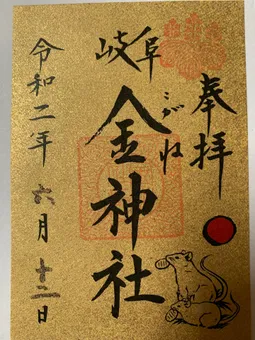 奉拝
岐阜
金神社
こがね
令和二年 六月 十二日